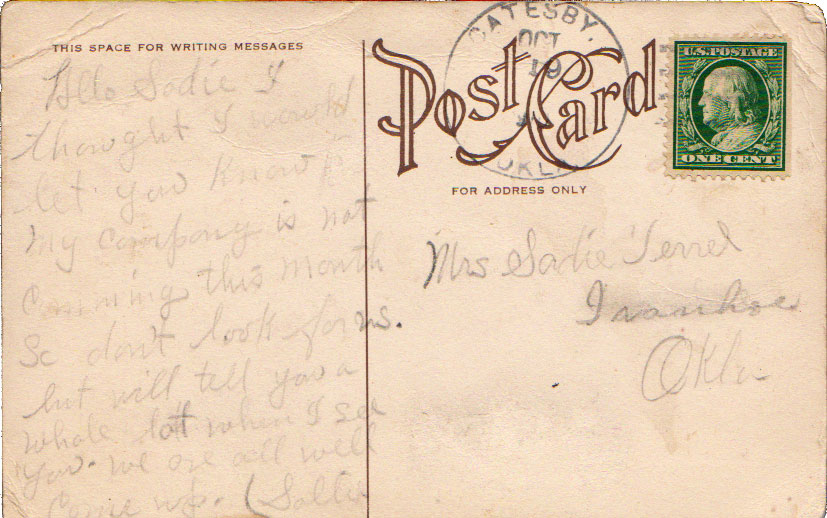 THIS SPACE FOR WRITING MESSAGES
Hello Sadie I
thought I would
let you know
my company is not
comming this month
So don't look for us.
but will tell you a
whole lott when I see
you. we are all well
Come up. (Sallie
GATESBY,
OCT
19
OKLA.
Post Card
FOR ADDRESS ONLY
U.S. POSTAGE
ONE CENT
Mrs Sadie Terrel
Ivanhoe
Okla